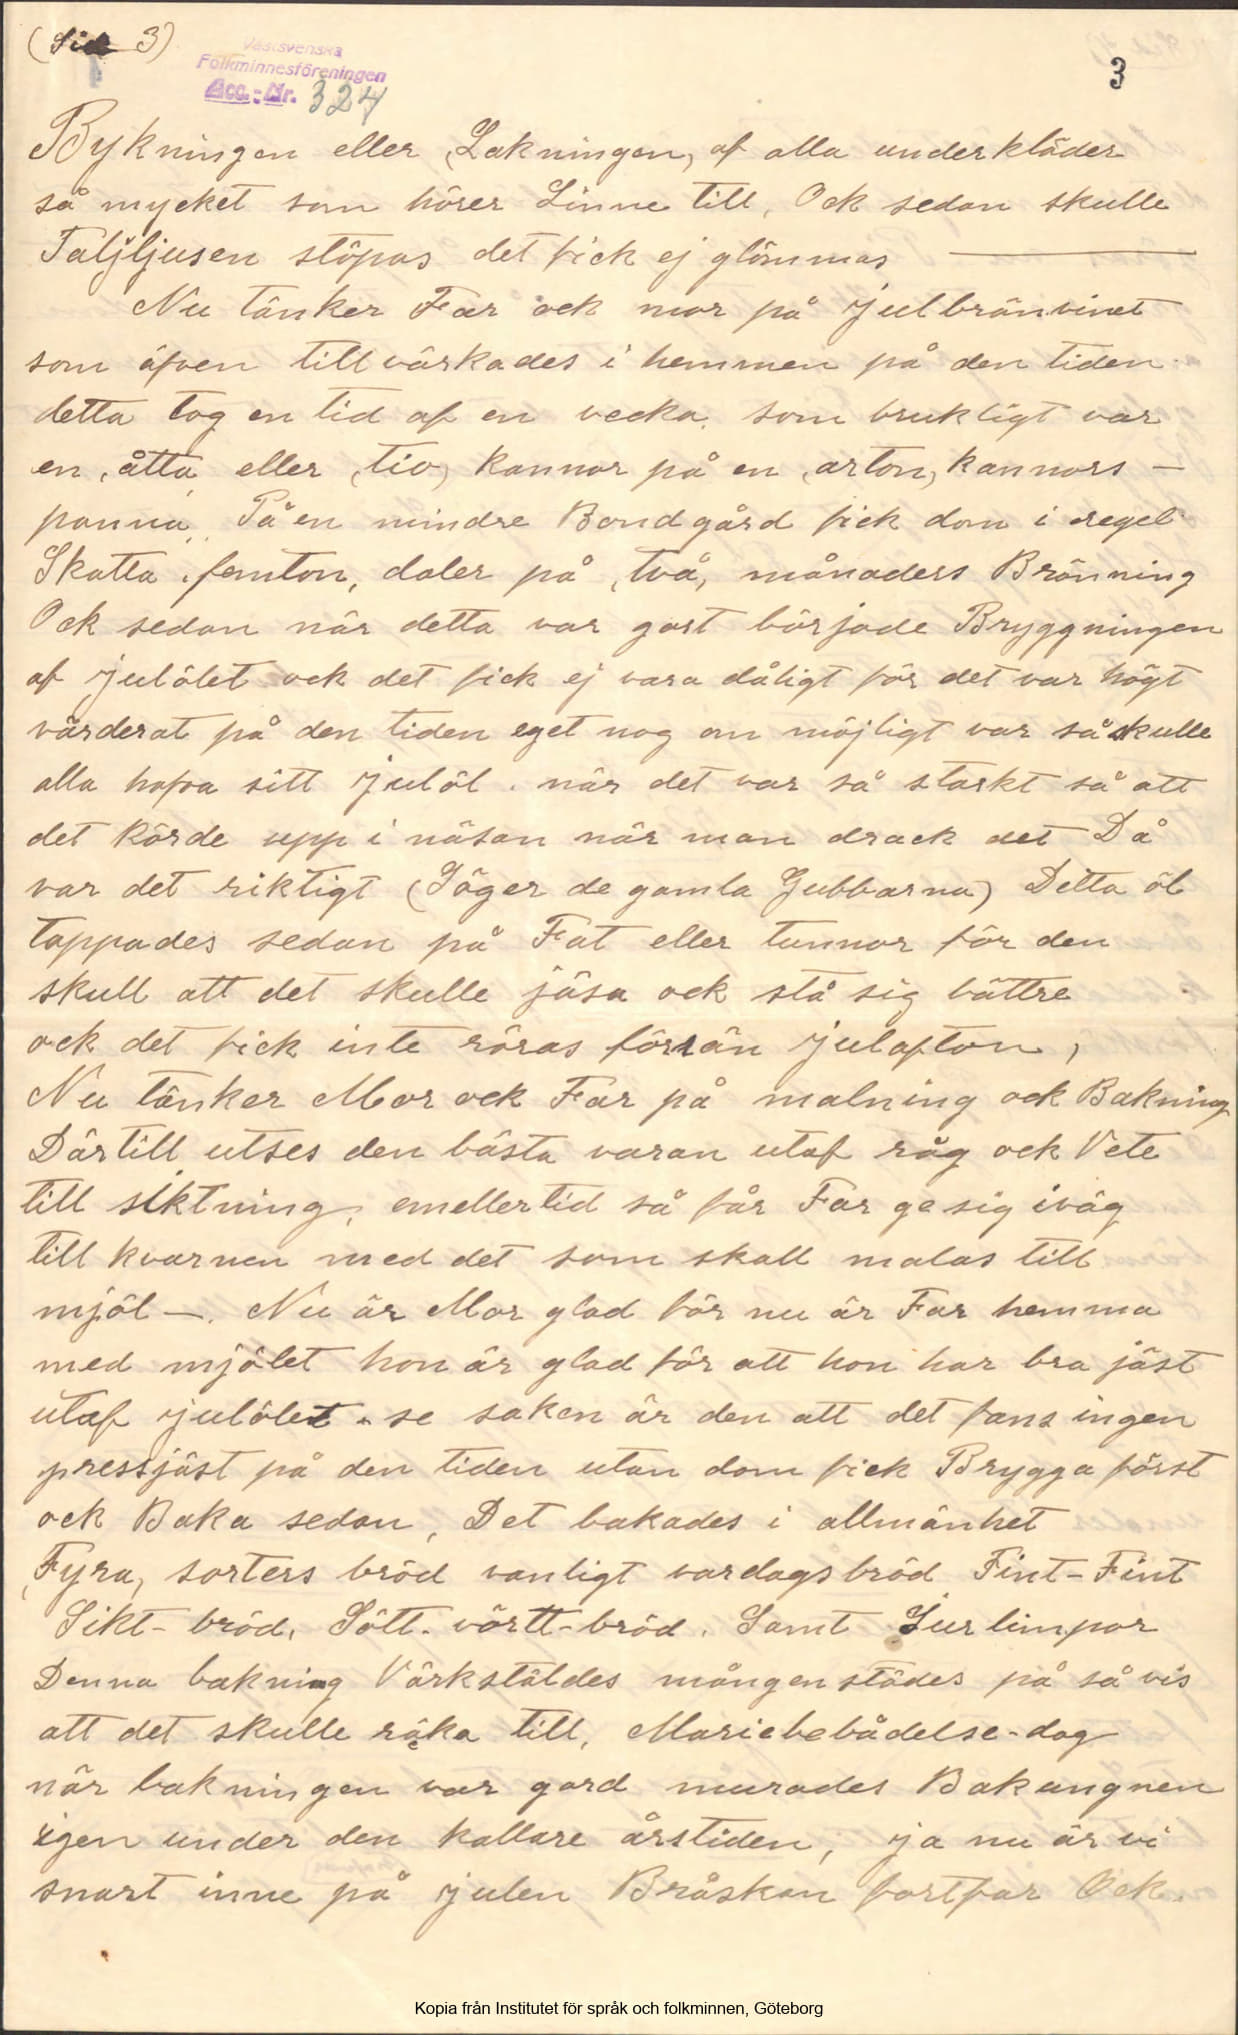 (Sid 3)
Västsvenska
Folkminnesföreningen
Acc.-Nr. 324
3
Bykningen eller (Lakningen) af alla underkläder
så mycket som hörer Linne till, Ock sedan skulle
Taljljusen stöpas det fick ej glömmas —
Nu tänker Far ock mor på julbränvinet
som äfven tillvärkades i hemmen på den tiden
detta tog en tid af en vecka, som brukligt var
en, åtta eller (tio) kannor på en (arton) kannors –
panna, På en mindre Bondgård fick dom i regel
Skatta, femton, daler på (två) månaders Bränning
Ock sedan när detta var gort började Bryggningen
af julölet ock det fick ej vara dåligt för det var högt
värderat på den tiden eget nog om möjligt var så skulle
alla hafva sitt julöl. när det var så starkt så att
det körde upp i näsan när man drack det Då
var det riktigt (Säger de gamla Gubbarna) Detta öl
tappades sedan på Fat eller tunnor för den
skull att det skulle jäsa ock stå sig bättre
ock det fick inte röras förrän julafton,
Nu tänker Mor ock Far på malning ock Bakning
Därtill utses den bästa varan utaf råg ock Vete
till siktning, emellertid så får Far ge sig iväg
till kvarnen med det som skall malas till
mjöl –. Nu är Mor glad för nu är Far hemma
med mjölet hon är glad för att hon har bra jäst
utaf julölet. se saken är den att det fans ingen
pressjäst på den tiden utan dom fick Brygga först
ock Baka sedan, Det bakades i allmänhet
(Fyra) sorters bröd vanligt vardagsbröd Fint-Fint
Sikt-bröd, Sött-vörtt-bröd. Samt Surlimpor
Denna bakning Värkstäldes mången städes på så vis
att det skulle räka till, Mariebebådelse-dag
när bakningen var gord murades Bakungnen
igen under den kallare årstiden, ja nu är vi
snart inne på julen Bråskan fortfar Ock.
Kopia från Institutet för språk och folkminnen, Göteborg